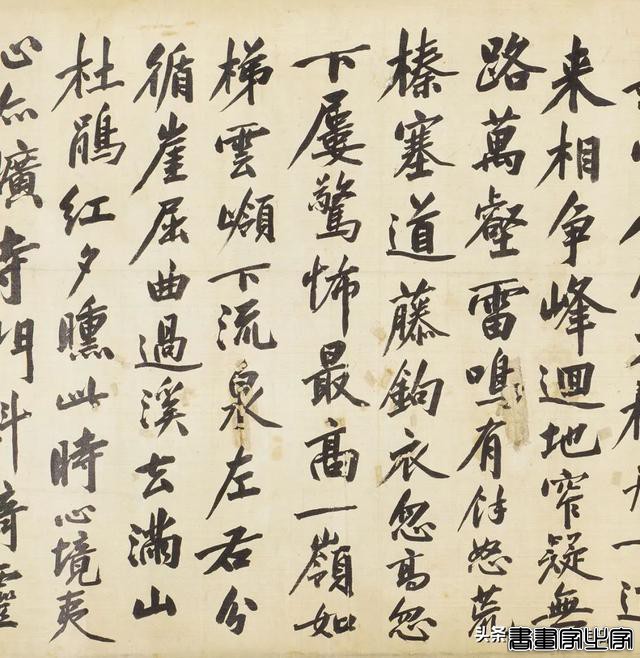 来相争峰迴地窄疑無
路萬壑雷鳴有餘怒荒
榛塞道藤鉤衣忽高忽
下屢驚怖最高一嶺如
梯雲下流泉左右分
循崖屈曲過溪去滿山
杜鵑红夕曛此時心境夷
心亦曠寺門斜倚靈
头条